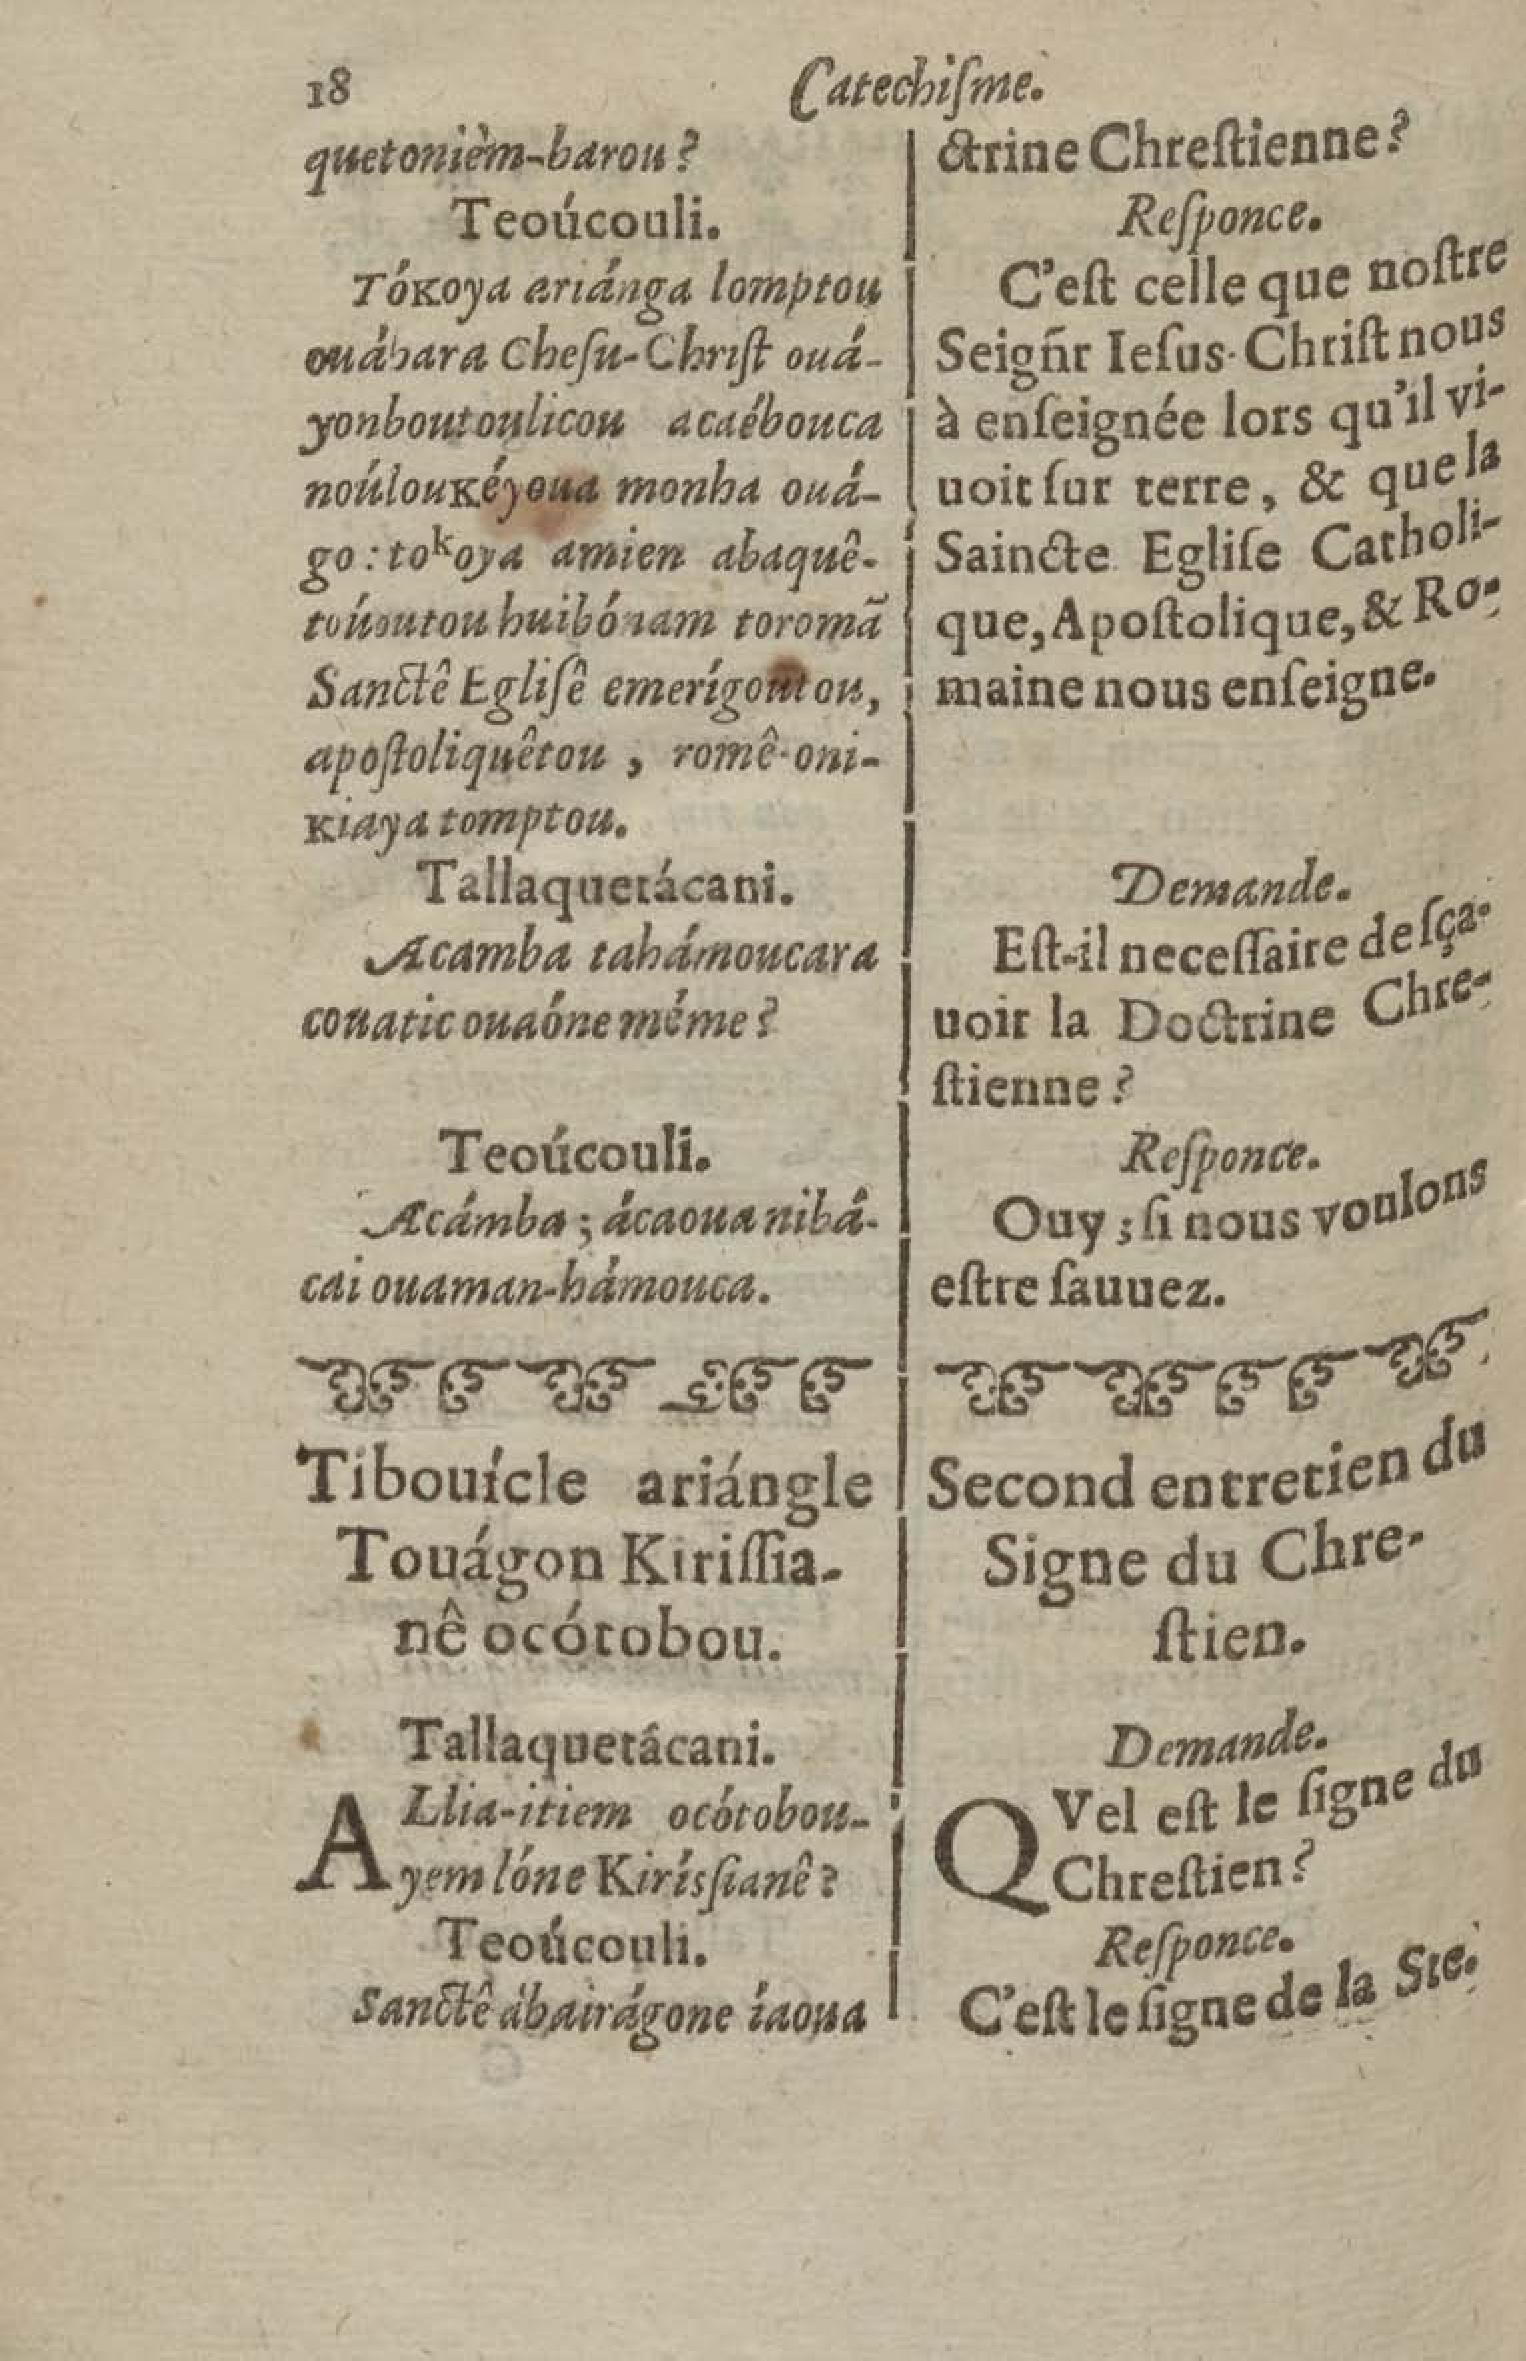 18 Catechiſme.
quetonièm-barou?
Teoúcouli.
Tóκoya eriánga lomptou
ouábara Cheſu-Chriſt ouá-
yonboutoulicou acaébouca
noúlouκéyoua monha ouá-
go: tokoya amien abaquê-
toúoutou huibónam toromã
Sanctê Egliſê emerígoutou,
apoſtoliquêtou, romê-oni-
κiaya tomptou.
Tallaquetácani.
Acamba tahámoucara
couatic ouaóne méme?
Teoúcouli.
Acámba; ácaoua nibá-
cai ouaman-hámouca.
Tibouícle ariángle
Touágon Kiriſſia-
nê ocótobou.
Tallaquetácani.
ALlia-itiem ocótobou-
yem lóne Kirísſianê?
Teoúcouli.
Sanctê ábairágone íaoua
ctrine Chreſtienne?
Reſponce.
C'eſt celle que noſtre
Seign̄r Ieſus-Chriſt nous
à enſeignée lors qu'il vi-
uoit ſur terre, & que la
Saincte Egliſe Catholi-
que, Apoſtolique, & Ro-
maine nous enſeigne.
Demande.
Eſt-il neceſſaire de ſça-
uoir la Doctrine Chre-
ſtienne?
Reſponce.
Ouy; ſi nous voulons
eſtre ſauuez.
Second entretien du
Signe du Chre-
ſtien.
Demande.
QVel eſt le ſigne du
Chreſtien?
Reſponce.
C'eſt le ſigne de la Ste.